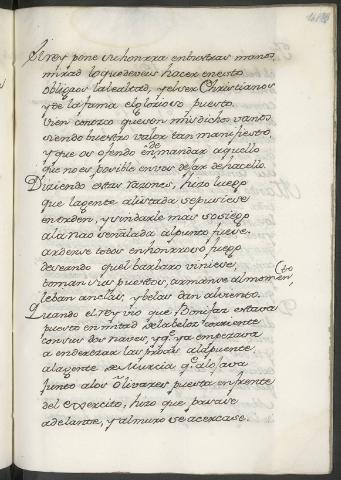 El rey pone su honrra en bustras manos
mirad lo que deveis hacer en esto
obligaos la lealtad, y el ser Christianos
y de la fama el glorioso puesto.
Vien conozco que son mis dichos vanos
siendo buestro valor tan manifiesto,
y que os ofendo en de mandar aquello
que no es posible en vos dejar de hacello.
Diziendo estas razones, hizo luego
que la gente alistada se pusiese
en orden, y sin darle mas sosiego
a la nao señalada al punto fuese.
arden se todos en honrroso fuego
deseando quel barbaro viniese,
toman sus puestos, arman se al momento,
leban anclas, y belas dan al viento.
Quando el rey vio que Bonifaz estava
puesto en mitad de la beloz corriente
con sus dos naves, y q. ya empezava
a enderezar las proas a la puente,
a la gente de Murcia q. alojava
junto a los Olivares puesta en frente
del exercito, hizo que pasase
adelante, y al muro se acercase.